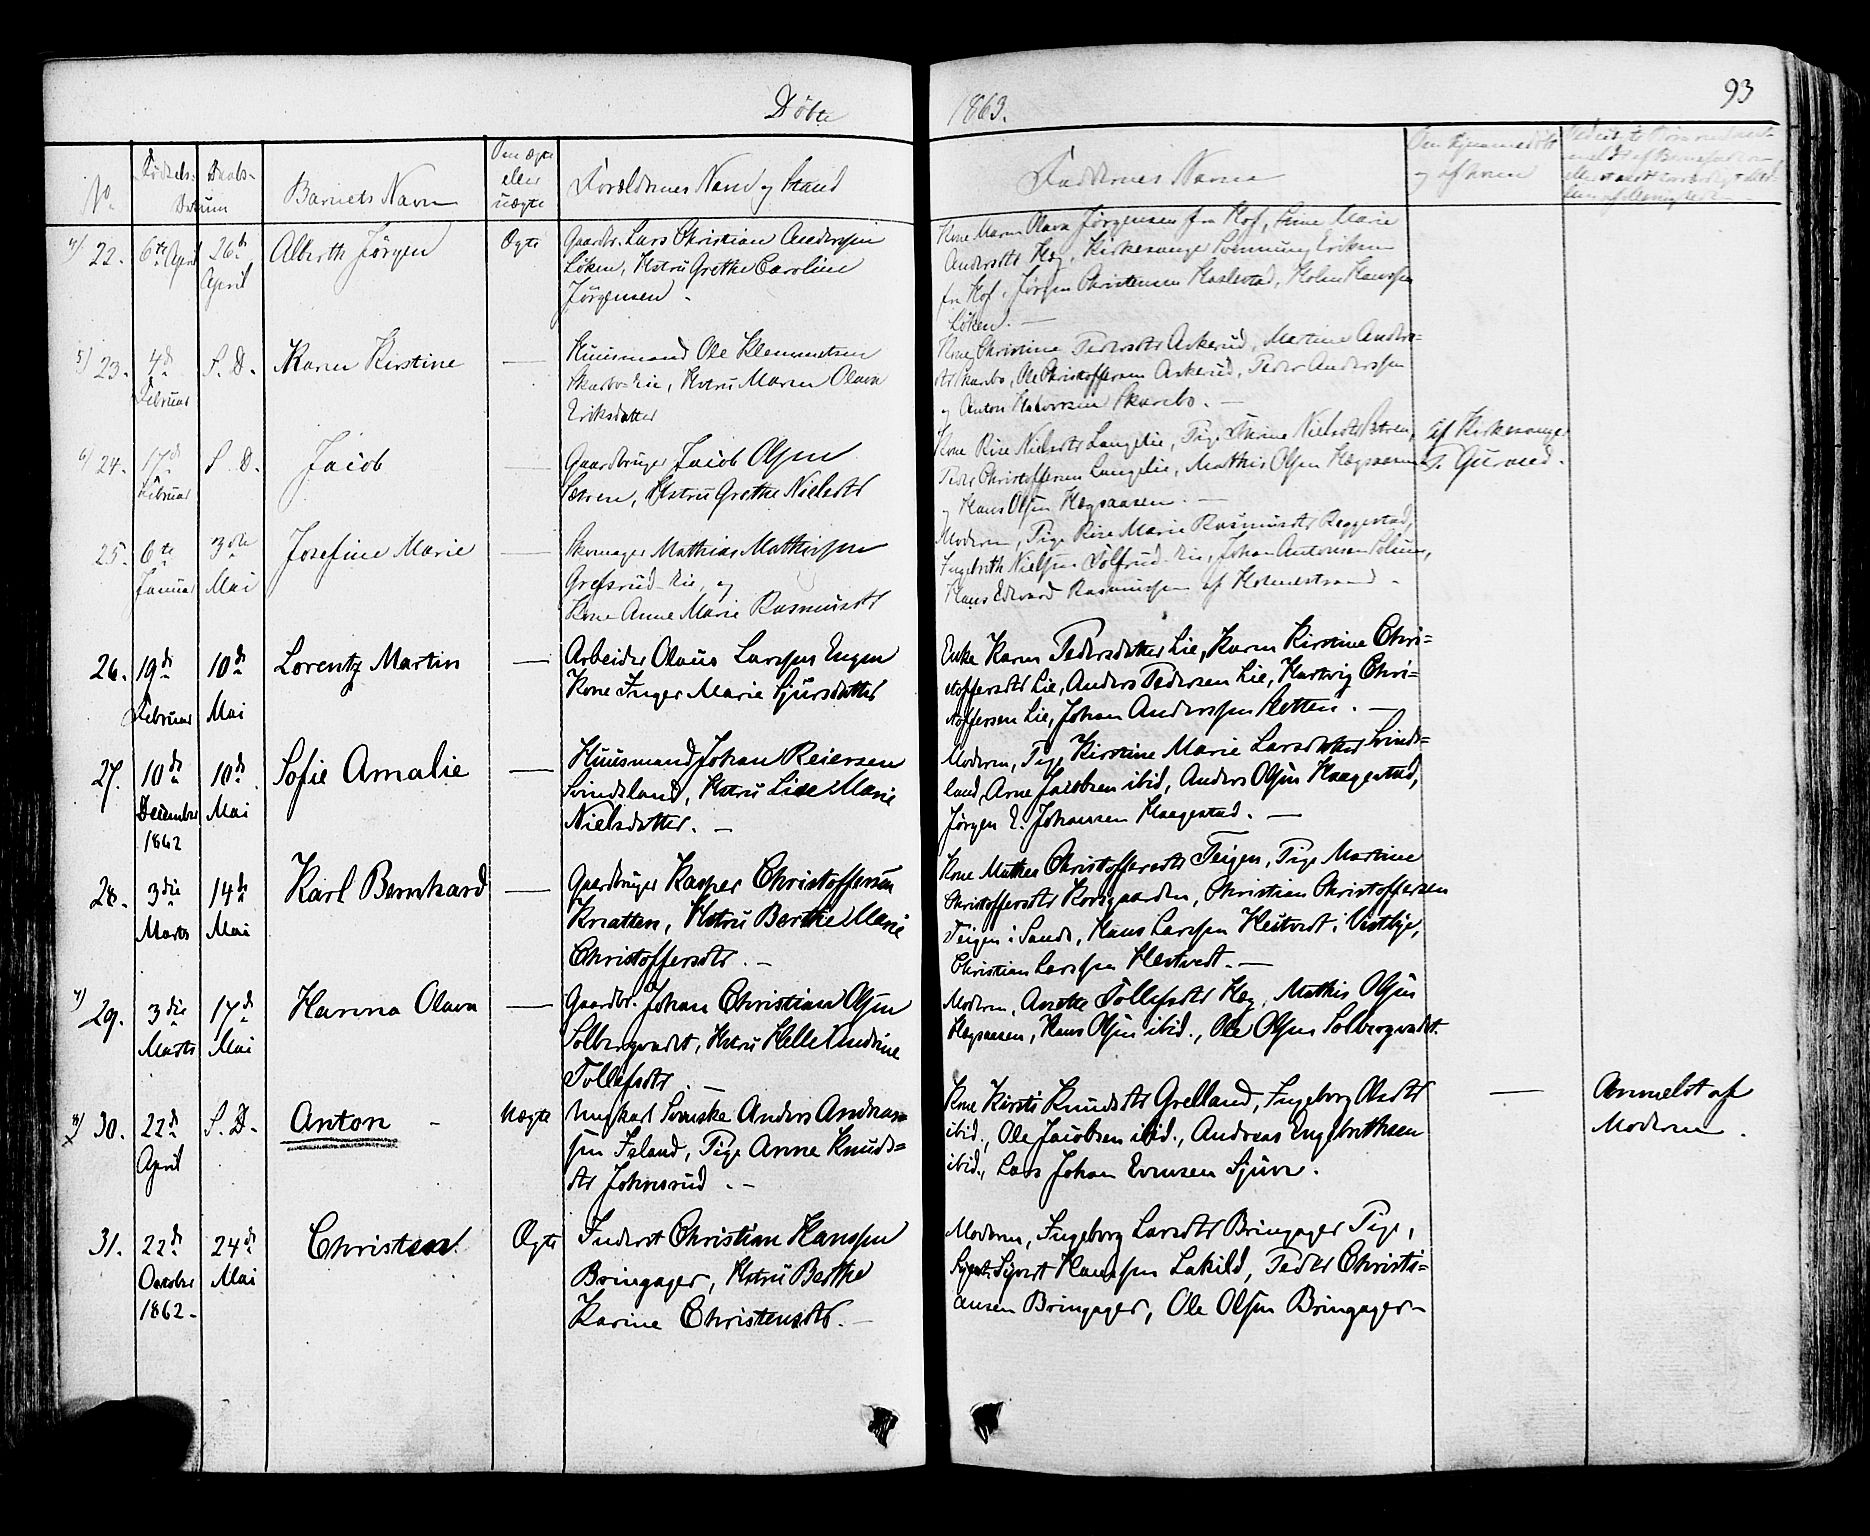 Döbte
1863.
93
No.
Födsels-
Daabs-
Datum
Barnets Navn
Om ægte
eller
uægte
Forældrenes Navn og Stand
Faddernes Navne
Om hjemmedöbt
og af hvem
4) 22. 6te April 26de April
Alberth Jörgen
Ægte
Gaardbr. Lars Christian Anderssen
Löken, Hstrü Grethe Caroline
Jörgensen.
Kone Maren Olava Jörgensen fra Hof, Line Marie
Andersdtr Hæg, Kirkesanger Eriksen
fra Hof, Jörgen Christensen Haslestad, Holm Hanssen
Löken. —
5) 23. 4de Februar S. D.
Maren Kirstine
—
Huusmand Ole Klemmetsen
Skarbo-Eie, Hstrü Maren Olava
Eriksdatter
Kone Christine Pedersdtr Askerud, Martine Anders-
dtr Skarbo, Ole Christoffersen Askerud, Peder Anderssen
og Anton Halvorsen Skarsbo. —
6) 24. 17de Februar S. D.
Jacob
—
Gaardbruger Jacob Olsen
Sætren, Hstrü Grethe Nielsdtr
Kone Rise Nielsdtr Langelie, Pige Nielsdtr Sætren,
Peder Christoffersen Langelie, Mathis Olsen Hægsaasen
og Hans Olsen Hægsaasen. —
af Kirkesanger
25. 6te Januar 3die Mai
Josefine Marie
—
Skomager Mathias Mathissen
Grefsrud-Eie, og
Kone Anne Marie Rasmusdtr
Moderen, Pige Rise Marie Rasmusdtr Reggestad,
Ingebrith Nielsen Tolfsrud-Eie, Johan Antonsen Solum,
Hans Edvard Rasmussen af Holmestrand.
26. 19de Februar 10de Mai
Lorentz Martin
—
Arbeider Olaus Larssen Engen
Kone Inger Marie Sjursdatter
Enke Karen Pedersdatter Lie, Karen Kirstine Chri-
stoffersdtr Lie, Anders Pedersen Lie, Hartvig Chri-
stoffersen Lie, Johan Anderssen Sletten. —
27. 10de December 1862 10de Mai
Sofie Amalie
—
Huusmand Johan Reiersen
Svindsland, Hstrü Lise Marie
Nielsdatter. —
Moderen, Pige Kirstine Marie Larsdatter Svinds-
land, Arne Jacobsen ibid, Anders Olsen Haagestad,
Jörgen E. Johansen Haagestad. —
28. 3die Marts 14de Mai
Karl Bernhard
—
Gaardbruger Kasper Christoffersen
Knatten, Hstrü Berthe Marie
Christoffersdtr. —
Kone Mathea Christoffersdtr Teigen, Pige Martine
Christoffersdtr Korsgaarden, Christian Christoffersen
Teigen i Sande, Hans Larssen Hestvedt i Vestbye,
Christian Larssen Hestvedt. —
7) 29. 3die Marts 17de Mai
Hanna Olava
—
Gaardbr. Johan Christian Olsen
Solbergvedet, Hstrü Helle Andrine
Tollefsdtr. —
Moderen, Anette Tollefsdtr Hæg, Mathis Olsen
Hægsaasen, Hans Olsen ibid., Ole Olsen Solbergvedet.
8) 30. 22de April S. D.
Anton
Uægte
Ungkarl Svenske Anders Andreas-
sen Island, Pige Anne Knuds-
dtr Johnsrud. —
Kone Kirsti Knudsdtr Grelland, Ingeborg Olsdtr
ibid., Ole Jacobsen ibid., Andreas Engebrethsen
ibid., Lars Johan Evensen Sjuve.
—
Anmeldt af
Moderen.
31. 22de October 1862. 24de Mai
Christen
Ægte
Inderst Christian Hanssen
Bringager, Hstrü Berthe
Karine Christensdtr. —
Moderen, Ingeborg Larsdtr Bringager Pige,
Syvert Hanssen Lakild, Peder Christi-
ansen Bringager, Ole Olsen Bringager